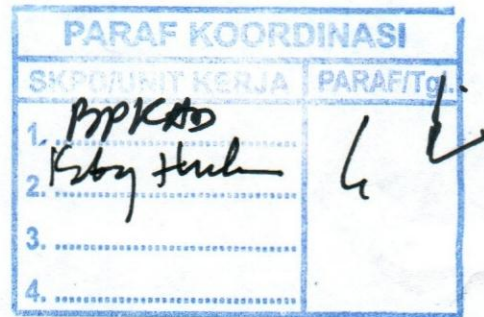 PARAF KOORDINASI
SKPD/UNIT KERJA PARAF/Tgl.
1. BPKAD
2. Kabag Hukum
3.
4.